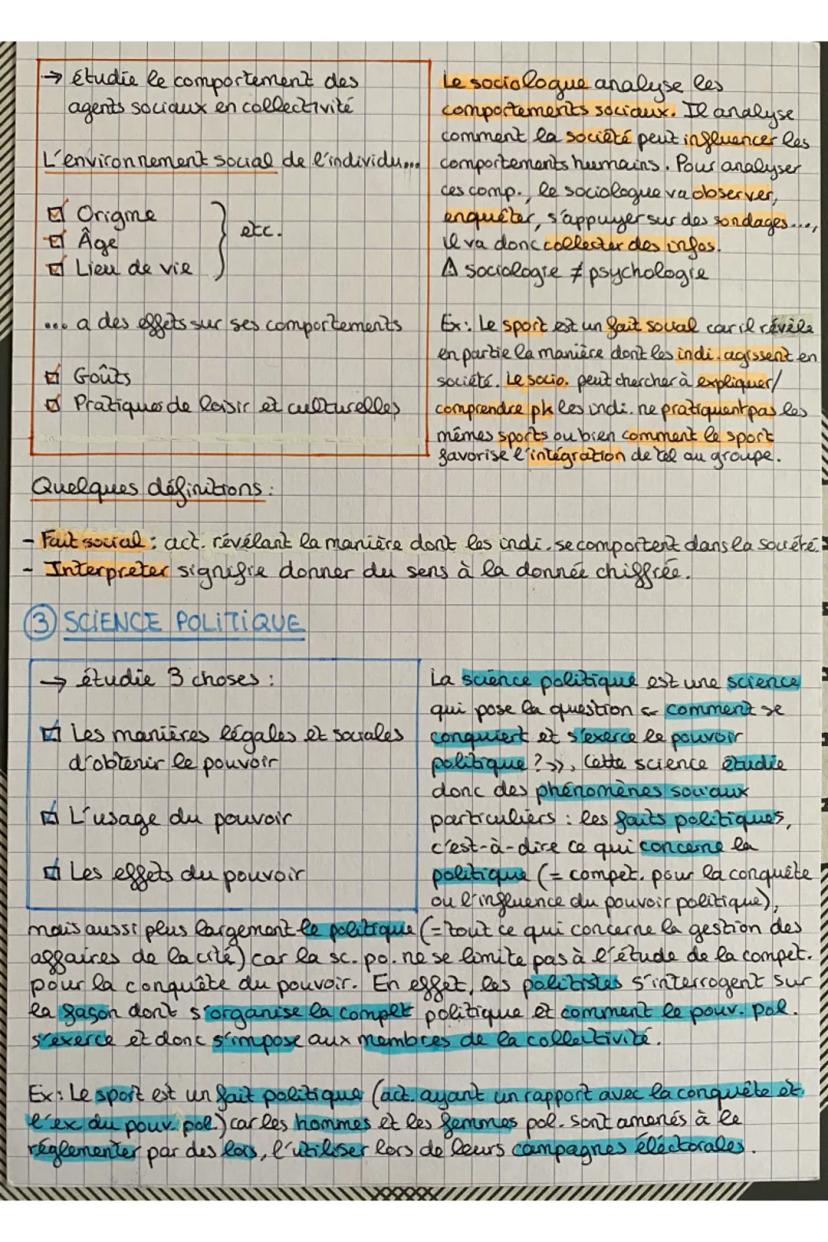 → étudie le comportement des
agents sociaux en collectivité
L'environnement social de l'individu...
Origine
Âge
Lieu de vie
etc.
... a des effets sur ses comportements
Goûts
Pratiques de loisir et culturelles
Le sociologue analyse les
comportements sociaux. Il analyse
comment la société peut influencer les
comportements humains. Pour analyser
ces comp., le sociologue va observer,
enquêter, s'appuyer sur des sondages...,
il va donc collecter des infos.
∆ sociologie ≠ psychologie
Ex: Le sport est un fait social car il révèle
en partie la manière dont les indi. agissent en
société. Le socio. peut chercher à expliquer/
comprendre pk les indi. ne pratiquent pas les
mêmes sports ou bien comment le sport
favorise l'intégration de tel ou groupe.
Quelques définitions :
- Fait social : act. révélant la manière dont les indi. se comportent dans la société.
- Interpreter signifie donner du sens à la donnée chiffrée.
③ SCIENCE POLITIQUE
→ étudie 3 choses :
Les manières légales et sociales
d'obtenir le pouvoir
L'usage du pouvoir
Les effets du pouvoir
La science politique est une science
qui pose la question « comment se
conquiert et s'exerce le pouvoir
politique ? », Cette science étudie
donc des phénomènes sociaux
particuliers : les faits politiques,
c'est-à-dire ce qui concerne la
politique (= compet. pour la conquête
ou l'influence du pouvoir politique),
mais aussi plus largement le politique (= tout ce qui concerne la gestion des
affaires de la cité) car la sc. po. ne se limite pas à l'étude de la compet.
pour la conquête du pouvoir. En effet, les politistes s'interrogent sur
la façon dont s'organise la compet politique et comment le pouv. pol.
s'exerce et donc s'impose aux membres de la collectivité.
Ex: Le sport est un fait politique (act. ayant un rapport avec la conquête et
l'ex du pouv. pol.) car les hommes et les femmes pol. sont amenés à le
réglementer par des lois, l'utiliser lors de leurs campagnes éléctorales.